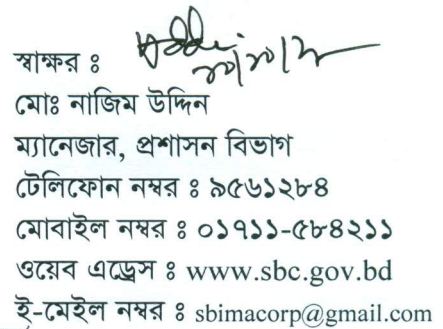 স্বাক্ষর ঃ
মোঃ নাজিম উদ্দিন
ম্যানেজার, প্রশাসন বিভাগ
টেলিফোন নম্বর ঃ ৯৫৬১২৮৪
মোবাইল নম্বর ঃ ০১৭১১-৫৮৪২১১
ওয়েব এড্রেস ঃ www.sbc.gov.bd
ই-মেইল নম্বর ঃ sbimacorp@gmail.com